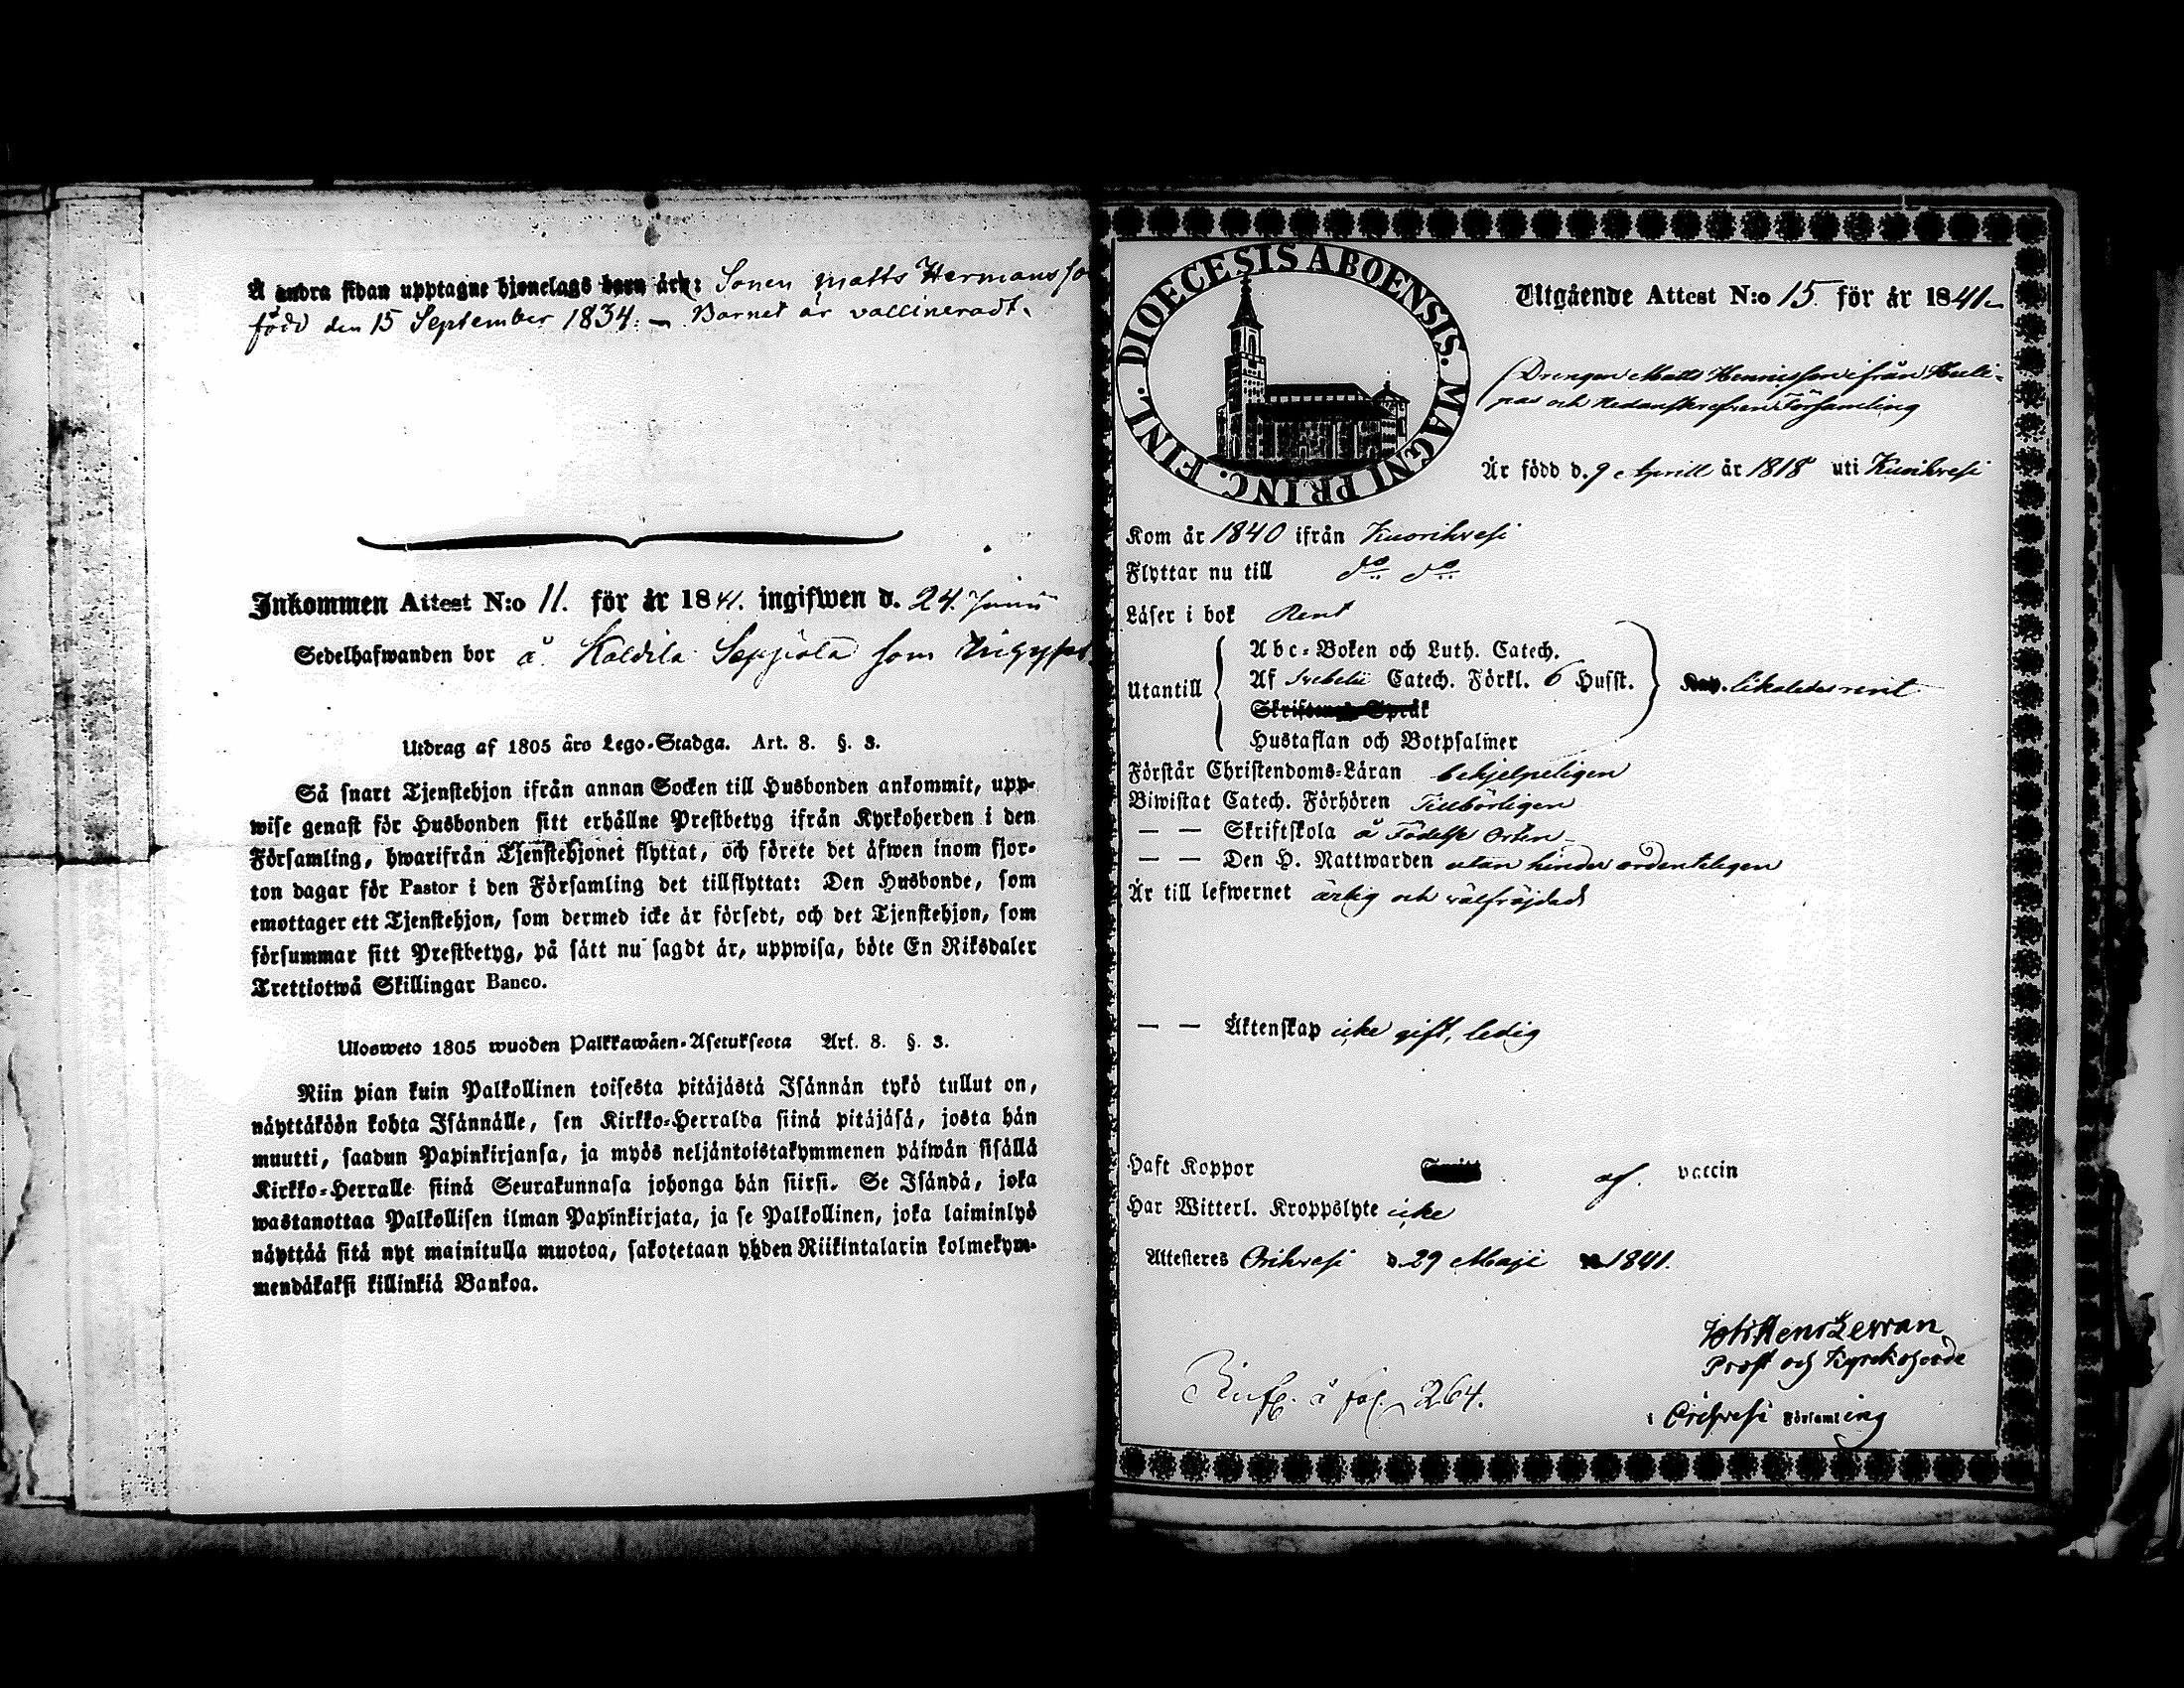 Å andra sidan upptagne hjonelags barn är: Sonen Matts Hermansso
född den 15 September 1834. — Barnet är vaccineradt.
Inkommen Attest N:o 11. för år 1841. ingifwen d. 24. Junii
Sedelhafwanden bor å Koldila Seppiola som
Utdrag af 1805 års Lego-Stadga. Art. 8. §. 3.
Så snart Tjenstehjon ifrån annan Socken till Husbonden ankommit, upp-
wise genast för Husbonden sitt erhållne Prestbetyg ifrån Kyrkoherden i den
Församling, hwarifrån Tjenstehjonet flyttat, och förete det äfwen inom fjor-
ton dagar för Pastor i den Församling det tillflyttat: Den Husbonde, som
emottager ett Tjenstehjon, som dermed icke är försedt, och det Tjenstehjon, som
försummar sitt Prestbetyg, på sätt nu sagdt är, uppwisa, böte En Riksdaler
Trettiotwå Skillingar Banco.
Ulosweto 1805 wuoden Palkkawäen-Asetuksesta Art. 8. §. 3.
Niin pian kuin Palkollinen toisesta pitäjästä Isännän tykö tullut on,
näyttäköön kohta Isännälle, sen Kirkko-Herralda siinä pitäjäsä, josta hän
muutti, saadun Papinkirjansa, ja myös neljäntoistakymmenen päiwän sisällä
Kirkko-Herralle siinä Seurakunnasa johonga hän siirsi. Se Isändä, joka
wastanottaa Palkollisen ilman Papinkirjata, ja se Palkollinen, joka laiminlyö
näyttää sitä nyt mainitulla muotoa, sakotetaan yhden Riikintalarin kolmekym-
mendäkaksi killinkiä Bankoa.
DIOECESIS ABOENSIS. MAGNI PRINC. FINL.
Utgående Attest N:o 15. för år 1841
Drengen Matts Hennigsson ifrån Huli-
pas och Nedanskrefven Församling
Är född d. 9 Aprill år 1818 uti Kuorihvesi
Kom år 1840 ifrån Kuorihvesi
Flyttar nu till do do
Läser i bok Rent
Utantill
Abc-Boken och Luth. Catech.
Af Svebelii Catech. Förkl. 6 Husst.
likaledes rent
Hustaflan och Botpsalmer
Förstår Christendoms-Läran behjelpeligen
Biwistat Catech. Förhören Tillbörligen
— — Skriftskola å Födelse Orten
— — Den H. Nattwarden utan hinder ordenteligen
Är till lefwernet ärlig och välfräjdad
— — Äktenskap icke gift, ledig
Haft Koppor af vaccin
Har Witterl. Kroppslyte icke
Attesteres Orihvesi d. 29 Maji 1841.
Prost och Kyrckoherde
i Orihvesi Församling
å fol. 264.